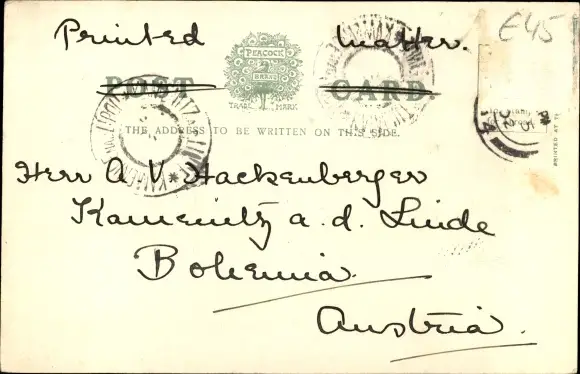 Printed Matter.
£45
PEACOCK
BRAND
TRADE MARK
POST CARD.
THE ADDRESS TO BE WRITTEN ON THIS SIDE.
Herr A. V. Hackenberger
Kamenitz a. d. Linde
Bohemia
Austria.